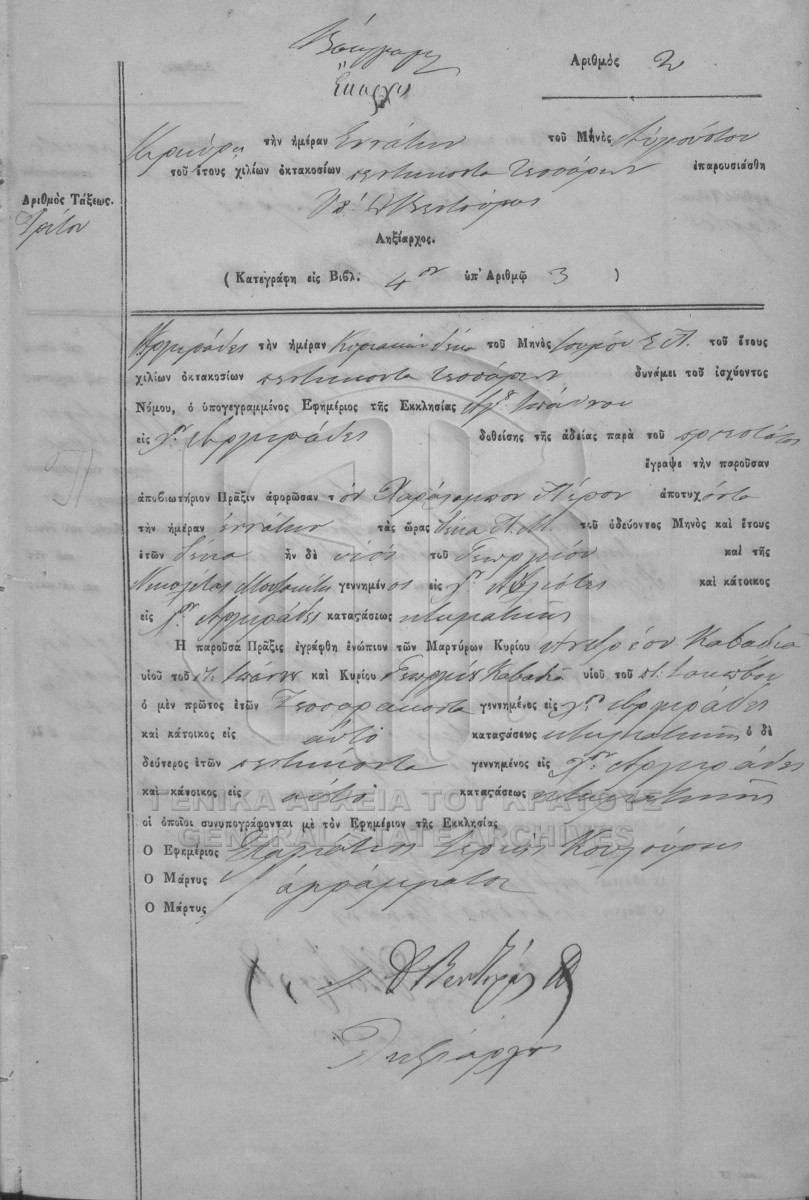 Ἀριθμὸς 2
Κερκύρᾳ τὴν ἡμέραν Ἐννάτην τοῦ Μηνὸς Αὐγούστου
τοῦ ἔτους χιλίων ὀκτακοσίων πεντήκοντα τεσσάρων ἐπαρουσιάσθη
Ἀριθμὸς Τάξεως.
Τρίτον
Ληξίαρχος.
( Κατεγράφη εἰς Βιβλ. 4ον ὑπ' Ἀριθμῷ 3 )
Ἀργυράδες τὴν ἡμέραν Κυριακὴν δέκα τοῦ Μηνὸς Ἰουνίου Ε.Π. τοῦ ἔτους
χιλίων ὀκτακοσίων πεντήκοντα τεσσάρων δυνάμει τοῦ ἰσχύοντος
Νόμου, ὁ ὑπογεγραμμένος Ἐφημέριος τῆς Ἐκκλησίας
εἰς χον Ἀργυράδες δοθείσης τῆς ἀδείας παρὰ τοῦ προεστῶτος
ἔγραψε τὴν παροῦσαν
ἀποβιωτήριον Πρᾶξιν ἀφορῶσαν τὸν Χαράλαμπον ἀποτυχόντα
τὴν ἡμέραν ἐννάτην τὰς ὥρας δέκα Π.Μ. τοῦ ὁδεύοντος Μηνὸς καὶ ἔτους
ἐτῶν δέκα ἦν δὲ υἱὸς τοῦ Γεωργίου καὶ τῆς
Νικολέτας γεννημένος εἰς χον καὶ κάτοικος
εἰς χον Ἀργυράδες καταστάσεως κτηματικῆς
Ἡ παροῦσα Πρᾶξις ἐγράφθη ἐνώπιον τῶν Μαρτύρων Κυρίου Ἀνδρέου Καβαδία
υἱοῦ τοῦ π. Ἰωάννου καὶ Κυρίου Γεωργίου Καβαδία υἱοῦ τοῦ π. Ἰακώβου
ὁ μὲν πρῶτος ἐτῶν Τεσσαράκοντα γεννημένος εἰς χον Ἀργυράδες
καὶ κάτοικος εἰς αὐτὸ καταστάσεως κτηματικῆς ὁ δὲ
δεύτερος ἐτῶν πεντήκοντα γεννημένος εἰς χον Ἀργυράδες
καὶ κάτοικος εἰς αὐτὸ καταστάσεως κτηματικῆς
ΓΕΝΙΚΑ ΑΡΧΕΙΑ ΤΟΥ ΚΡΑΤΟΥΣ
οἱ ὁποῖοι συνυπογράφονται μὲ τὸν Ἐφημέριον τῆς Ἐκκλησίας
GENERAL STATE ARCHIVES
Ὁ Ἐφημέριος Παναγιώτης Ἱερεὺς Κουλούρης
Ὁ Μάρτυς ἀγράμματοι
Ὁ Μάρτυς
Ληξίαρχος